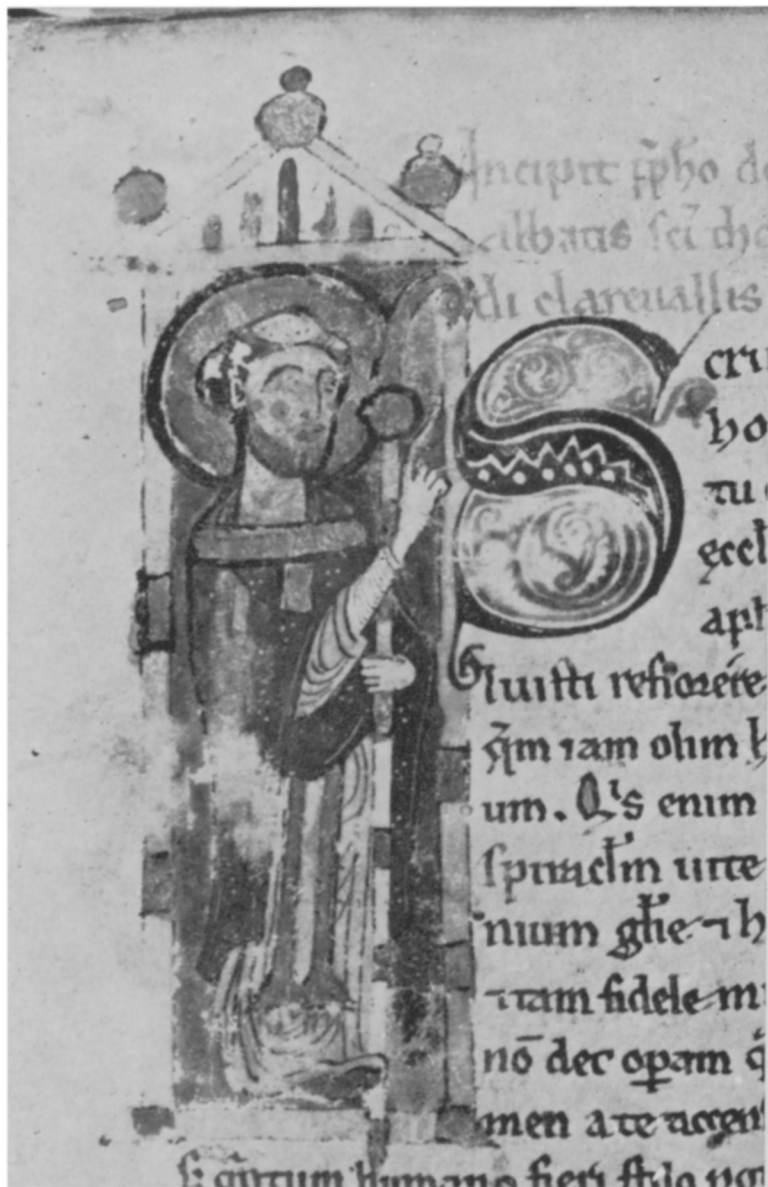 Incipit ꝓho de
abbatis sci tho
di clareuallis
S cri
ho
tu
eccl
aph
luisti reflorere
q̄m iam olim h
um. Qis enim
spiraclm uite
nium glie ⁊ h
itam fidele m
nō dec opam q̄
men a te accen
humano fieri stilo